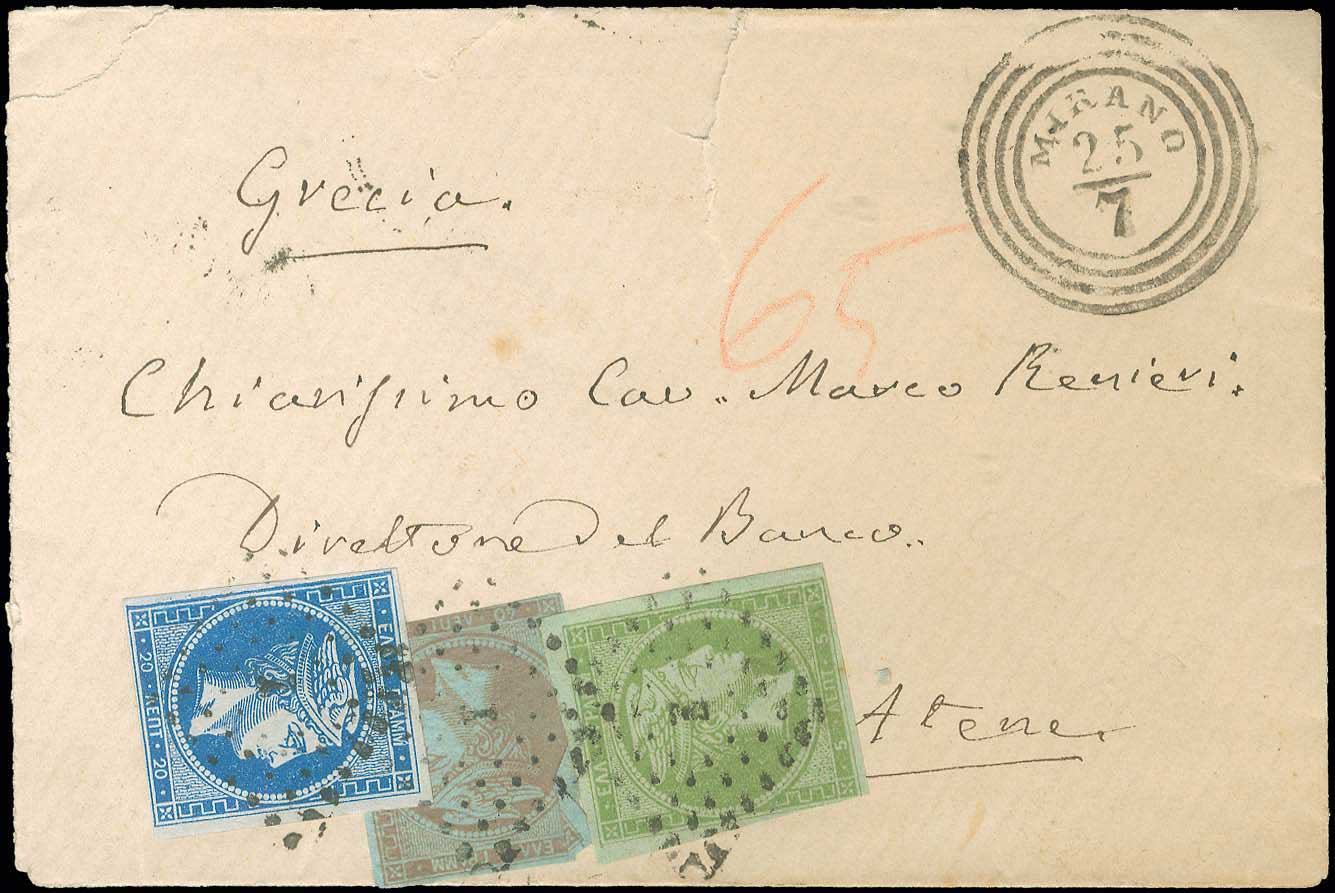 MIRANO
25
7
Grecia.
65
Chiarissimo Cav. Marco Renieri.
Direttore del Banco.
Atene.
ΕΛΛ ΓΡΑΜΜ
20 · ΛΕΠΤ · 20
ΕΛΛ ΓΡΑΜΜ
ΛΕΠΤ
ΕΛΛ ΓΡΑΜΜ
5 · ΛΕΠΤ · 5